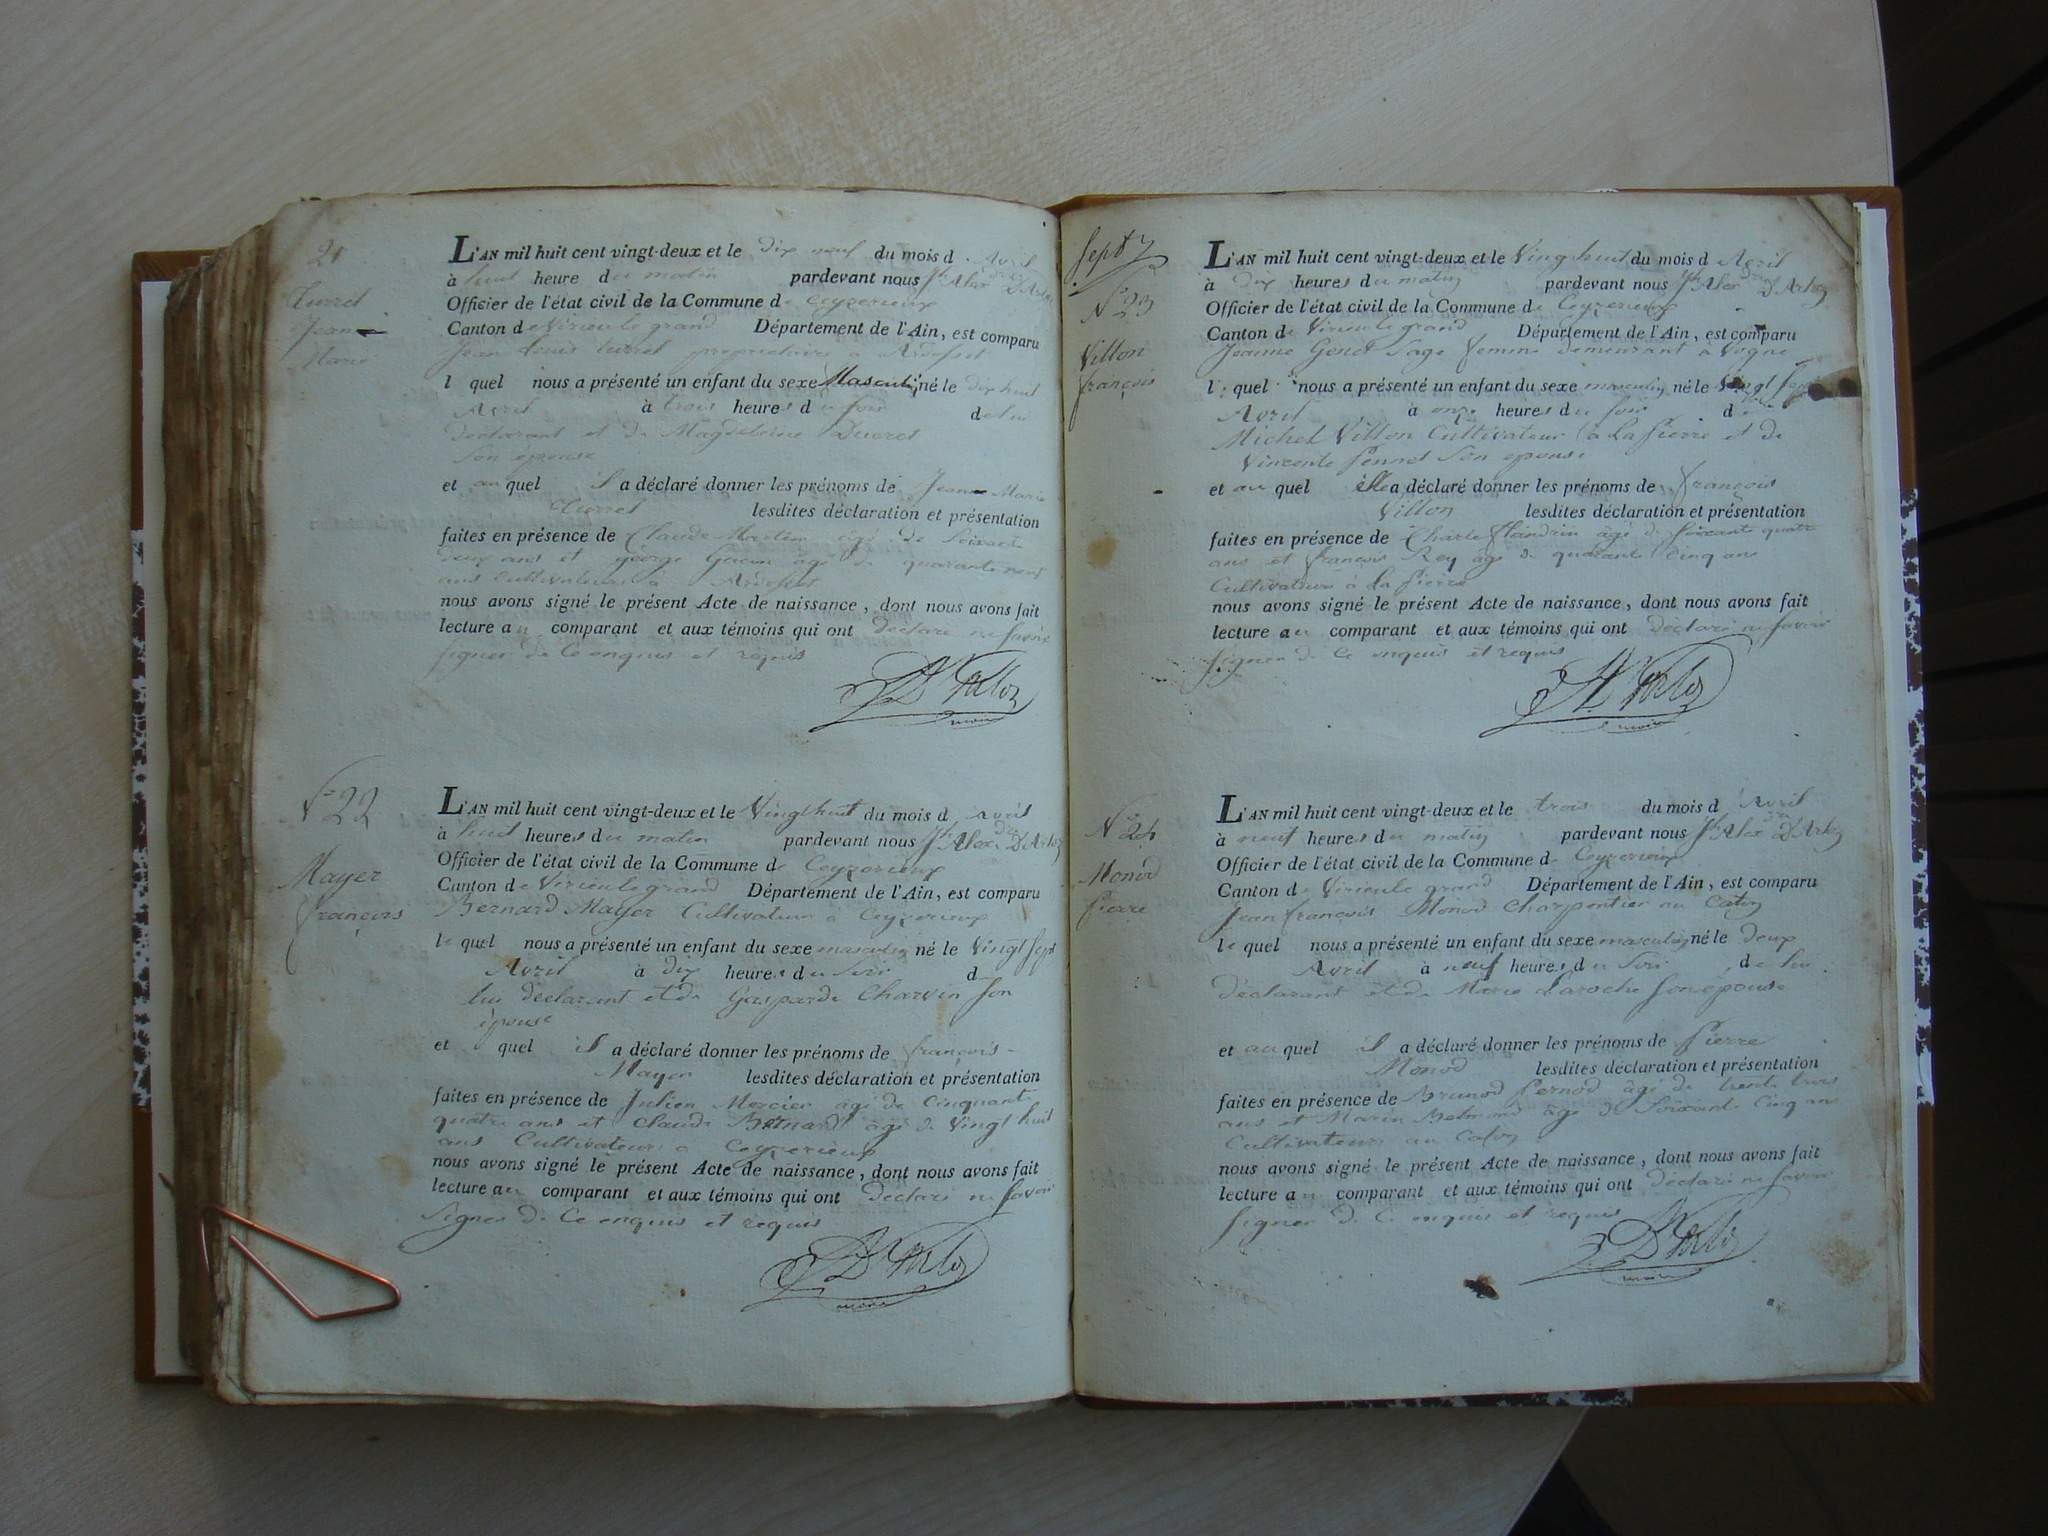 21
Turrel
Jean
Marie
L'AN mil huit cent vingt-deux et le dix neuf du mois d Avril
à huit heure du matin pardevant nous Jh Alex D'Arloz
Officier de l'état civil de la Commune de Ceyzerieux
Canton de Virieu le grand Département de l'Ain, est comparu
Jean Louis turrel proprietaire a
l quel nous a présenté un enfant du sexe Masculin né le dix huit
Avril à trois heures du soir de lui
declarant et de Magdeleine Ducret
son epouse
et au quel il a déclaré donner les prénoms de Jean Marie
Turrel lesdites déclaration et présentation
faites en présence de Claude Martin agé de Soixante
deux ans et george Gacon agé de quarante neuf
ans Cultivateurs à
nous avons signé le présent Acte de naissance, dont nous avons fait
lecture au comparant et aux témoins qui ont déclaré ne savoir
signer de Ce enquis et requis
D'Arloz
maire
N° 22
Mayer
françois
L'AN mil huit cent vingt-deux et le Vingt huit du mois d avril
à huit heures du matin pardevant nous Jh Alex D'Arloz
Officier de l'état civil de la Commune de Ceyzerieux
Canton de Virieu le grand Département de l'Ain, est comparu
Bernard Mayer Cultivateur a Ceyzerieux
le quel nous a présenté un enfant du sexe masculin né le Vingt sept
Avril à dix heures du soir d
lui déclarant et de Gasparde Charvin son
épouse
et quel il a déclaré donner les prénoms de françois
Mayer lesdites déclaration et présentation
faites en présence de Julien Mercier agé de Cinquante
quatre ans et Claude Bernard agé de Vingt huit
ans Cultivateurs a Ceyzerieux
nous avons signé le présent Acte de naissance, dont nous avons fait
lecture au comparant et aux témoins qui ont déclaré ne savoir
signer de Ce enquis et requis
D'Arloz
maire
sept 7
N° 23
Villon
françois
L'AN mil huit cent vingt-deux et le Vingt huit du mois d Avril
à dix heures du matin pardevant nous Jh Alex D'Arloz
Officier de l'état civil de la Commune de Ceyzerieux
Canton de Virieu le grand Département de l'Ain, est comparu
Jeanne Genet Sage femme demeurant a Vogne
l quel nous a présenté un enfant du sexe masculin né le Vingt sept
Avril à onze heures du soir de
Michel Villon Cultivateur a La pierre et de
Vincente Son epouse
et au quel elle a déclaré donner les prénoms de françois
Villon lesdites déclaration et présentation
faites en présence de Charle flandrin âgé de soixante quatre
ans et françois Rey âgé de quarante Cinq ans
Cultivateurs à La pierre
nous avons signé le présent Acte de naissance, dont nous avons fait
lecture au comparant et aux témoins qui ont déclaré ne savoir
signer de Ce enquis et requis
D'Arloz
maire
N° 24
Monod
pierre
L'AN mil huit cent vingt-deux et le trois du mois d Avril
à neuf heures du matin pardevant nous Jh Alex D'Arloz
Officier de l'état civil de la Commune de Ceyzerieux
Canton de Virieu le grand Département de l'Ain, est comparu
Jean françois Monod Charpentier au
le quel nous a présenté un enfant du sexe masculin né le deux
Avril à neuf heures du soir de lui
déclarant et de Marie Laroche son epouse
et au quel il a déclaré donner les prénoms de pierre
Monod lesdites déclaration et présentation
faites en présence de Brunod pernod âgé de trente trois
ans et Marin Belmond âgé de Soixante Cinq ans
Cultivateurs au
nous avons signé le présent Acte de naissance, dont nous avons fait
lecture au comparant et aux témoins qui ont déclaré ne savoir
signer de Ce enquis et requis
D'Arloz
maire